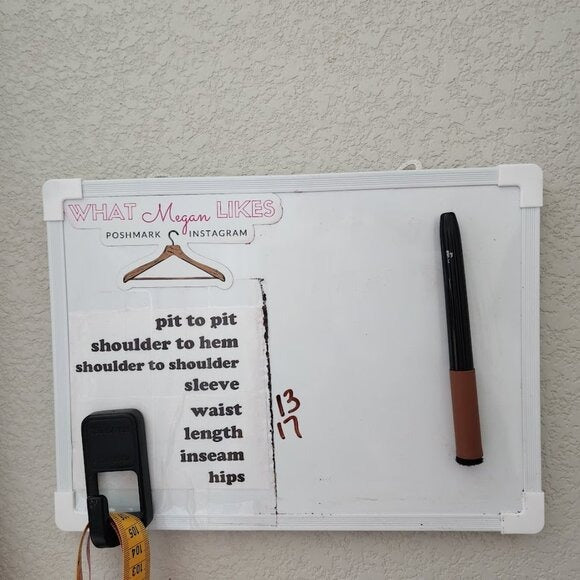 WHAT Megan LIKES
POSHMARK INSTAGRAM
pit to pit
shoulder to hem
shoulder to shoulder
sleeve
waist 13
length 17
inseam
hips
105
104
103